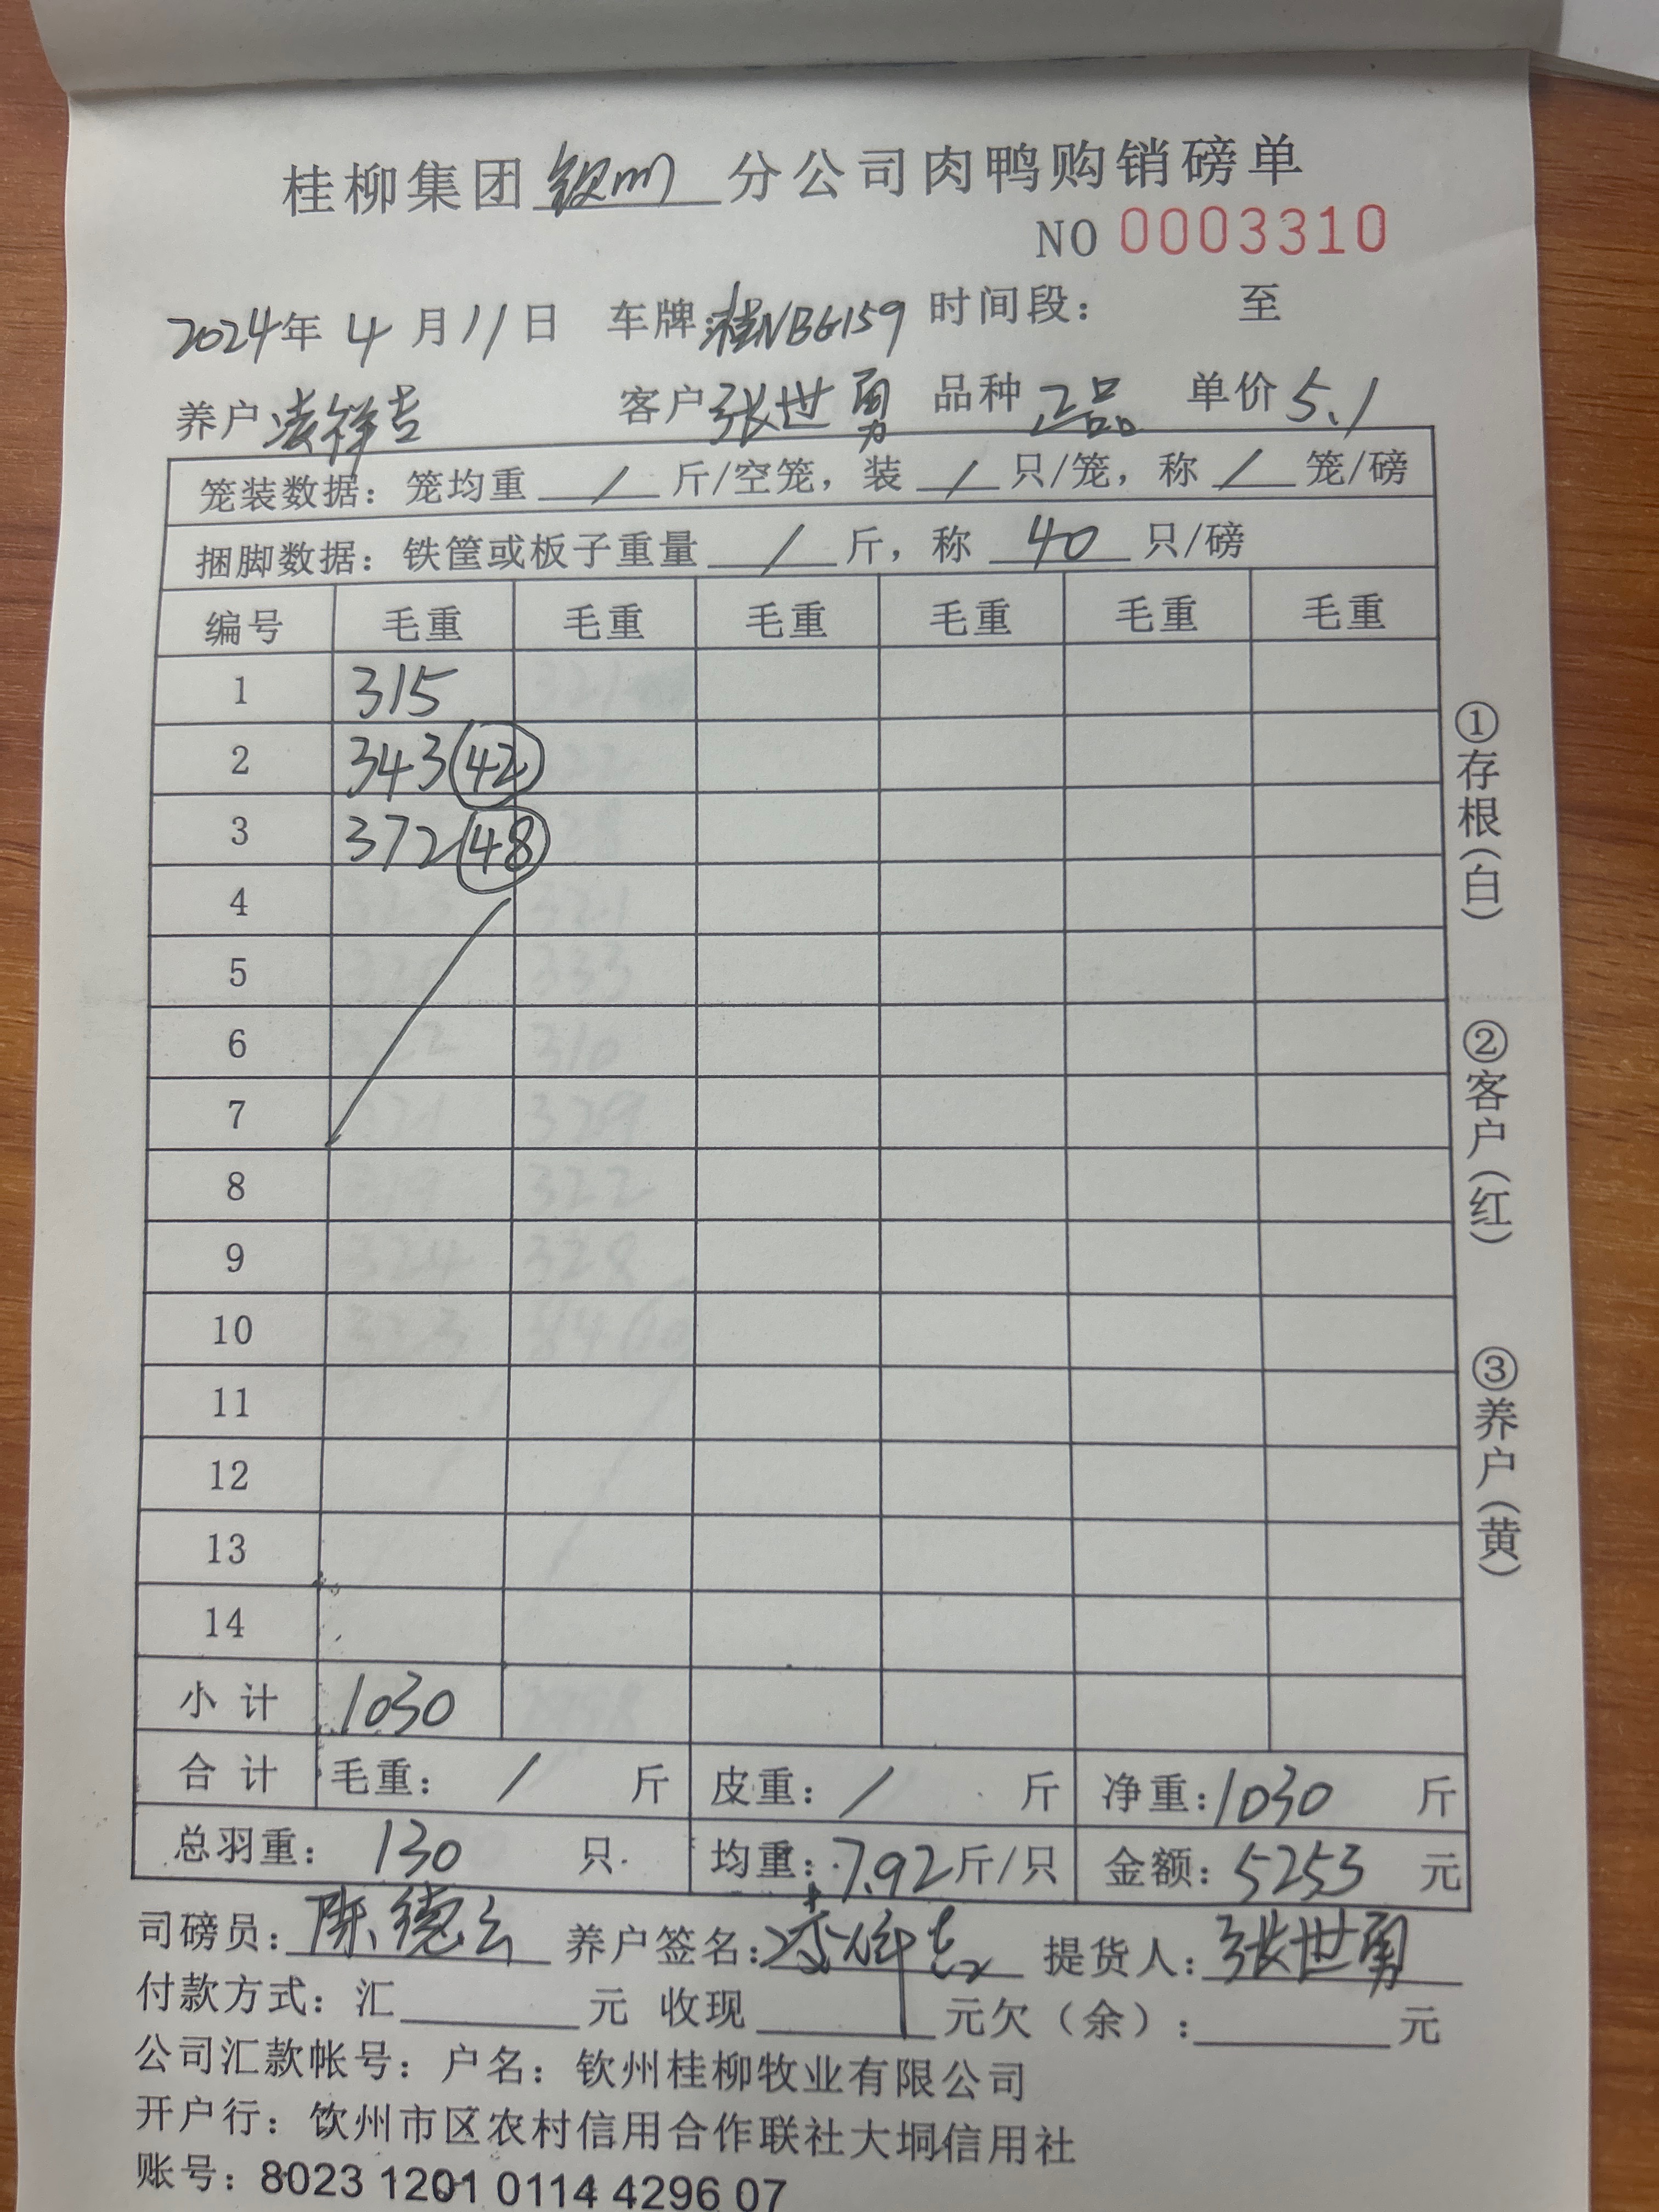 桂柳集团 钦州 分公司肉鸭购销磅单
NO 0003310
2024年 4 月 11 日 车牌:桂NBG159 时间段: 至
养户 凌祥吉 客户 张世勇 品种 正品 单价 5.1
笼装数据: 笼均重 / 斤/空笼, 装 / 只/笼, 称 / 笼/磅
捆脚数据: 铁筐或板子重量 / 斤, 称 40 只/磅
编号 毛重 毛重 毛重 毛重 毛重 毛重
1 315
2 343 42
3 372 48
4
5
6
7
8
9
10
11
12
13
14
小计 1030
合计 毛重: / 斤 皮重: / 斤 净重: 1030 斤
总羽重: 130 只 均重: 7.92 斤/只 金额: 5253 元
司磅员: 陈德云 养户签名: 凌祥吉 提货人: 张世勇
付款方式: 汇 元 收现 元 欠(余): 元
公司汇款帐号: 户名: 钦州桂柳牧业有限公司
开户行: 饮州市区农村信用合作联社大垌信用社
账号: 8023 1201 0114 4296 07
①存根(白)
②客户(红)
③养户(黄)